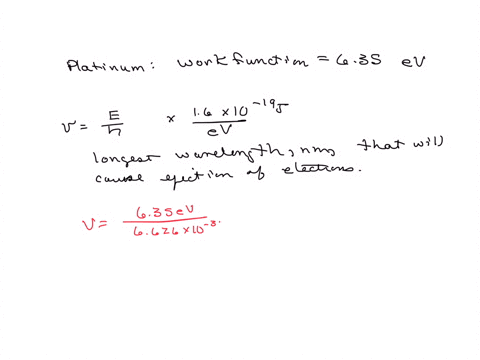 Platinum: work function = 6.35 eV
ν = E/h × 1.6 × 10⁻¹⁹ J/eV
longest wavelength, nm, that will
cause ejection of electrons.
ν = 6.35 eV/6.626 × 10⁻³·